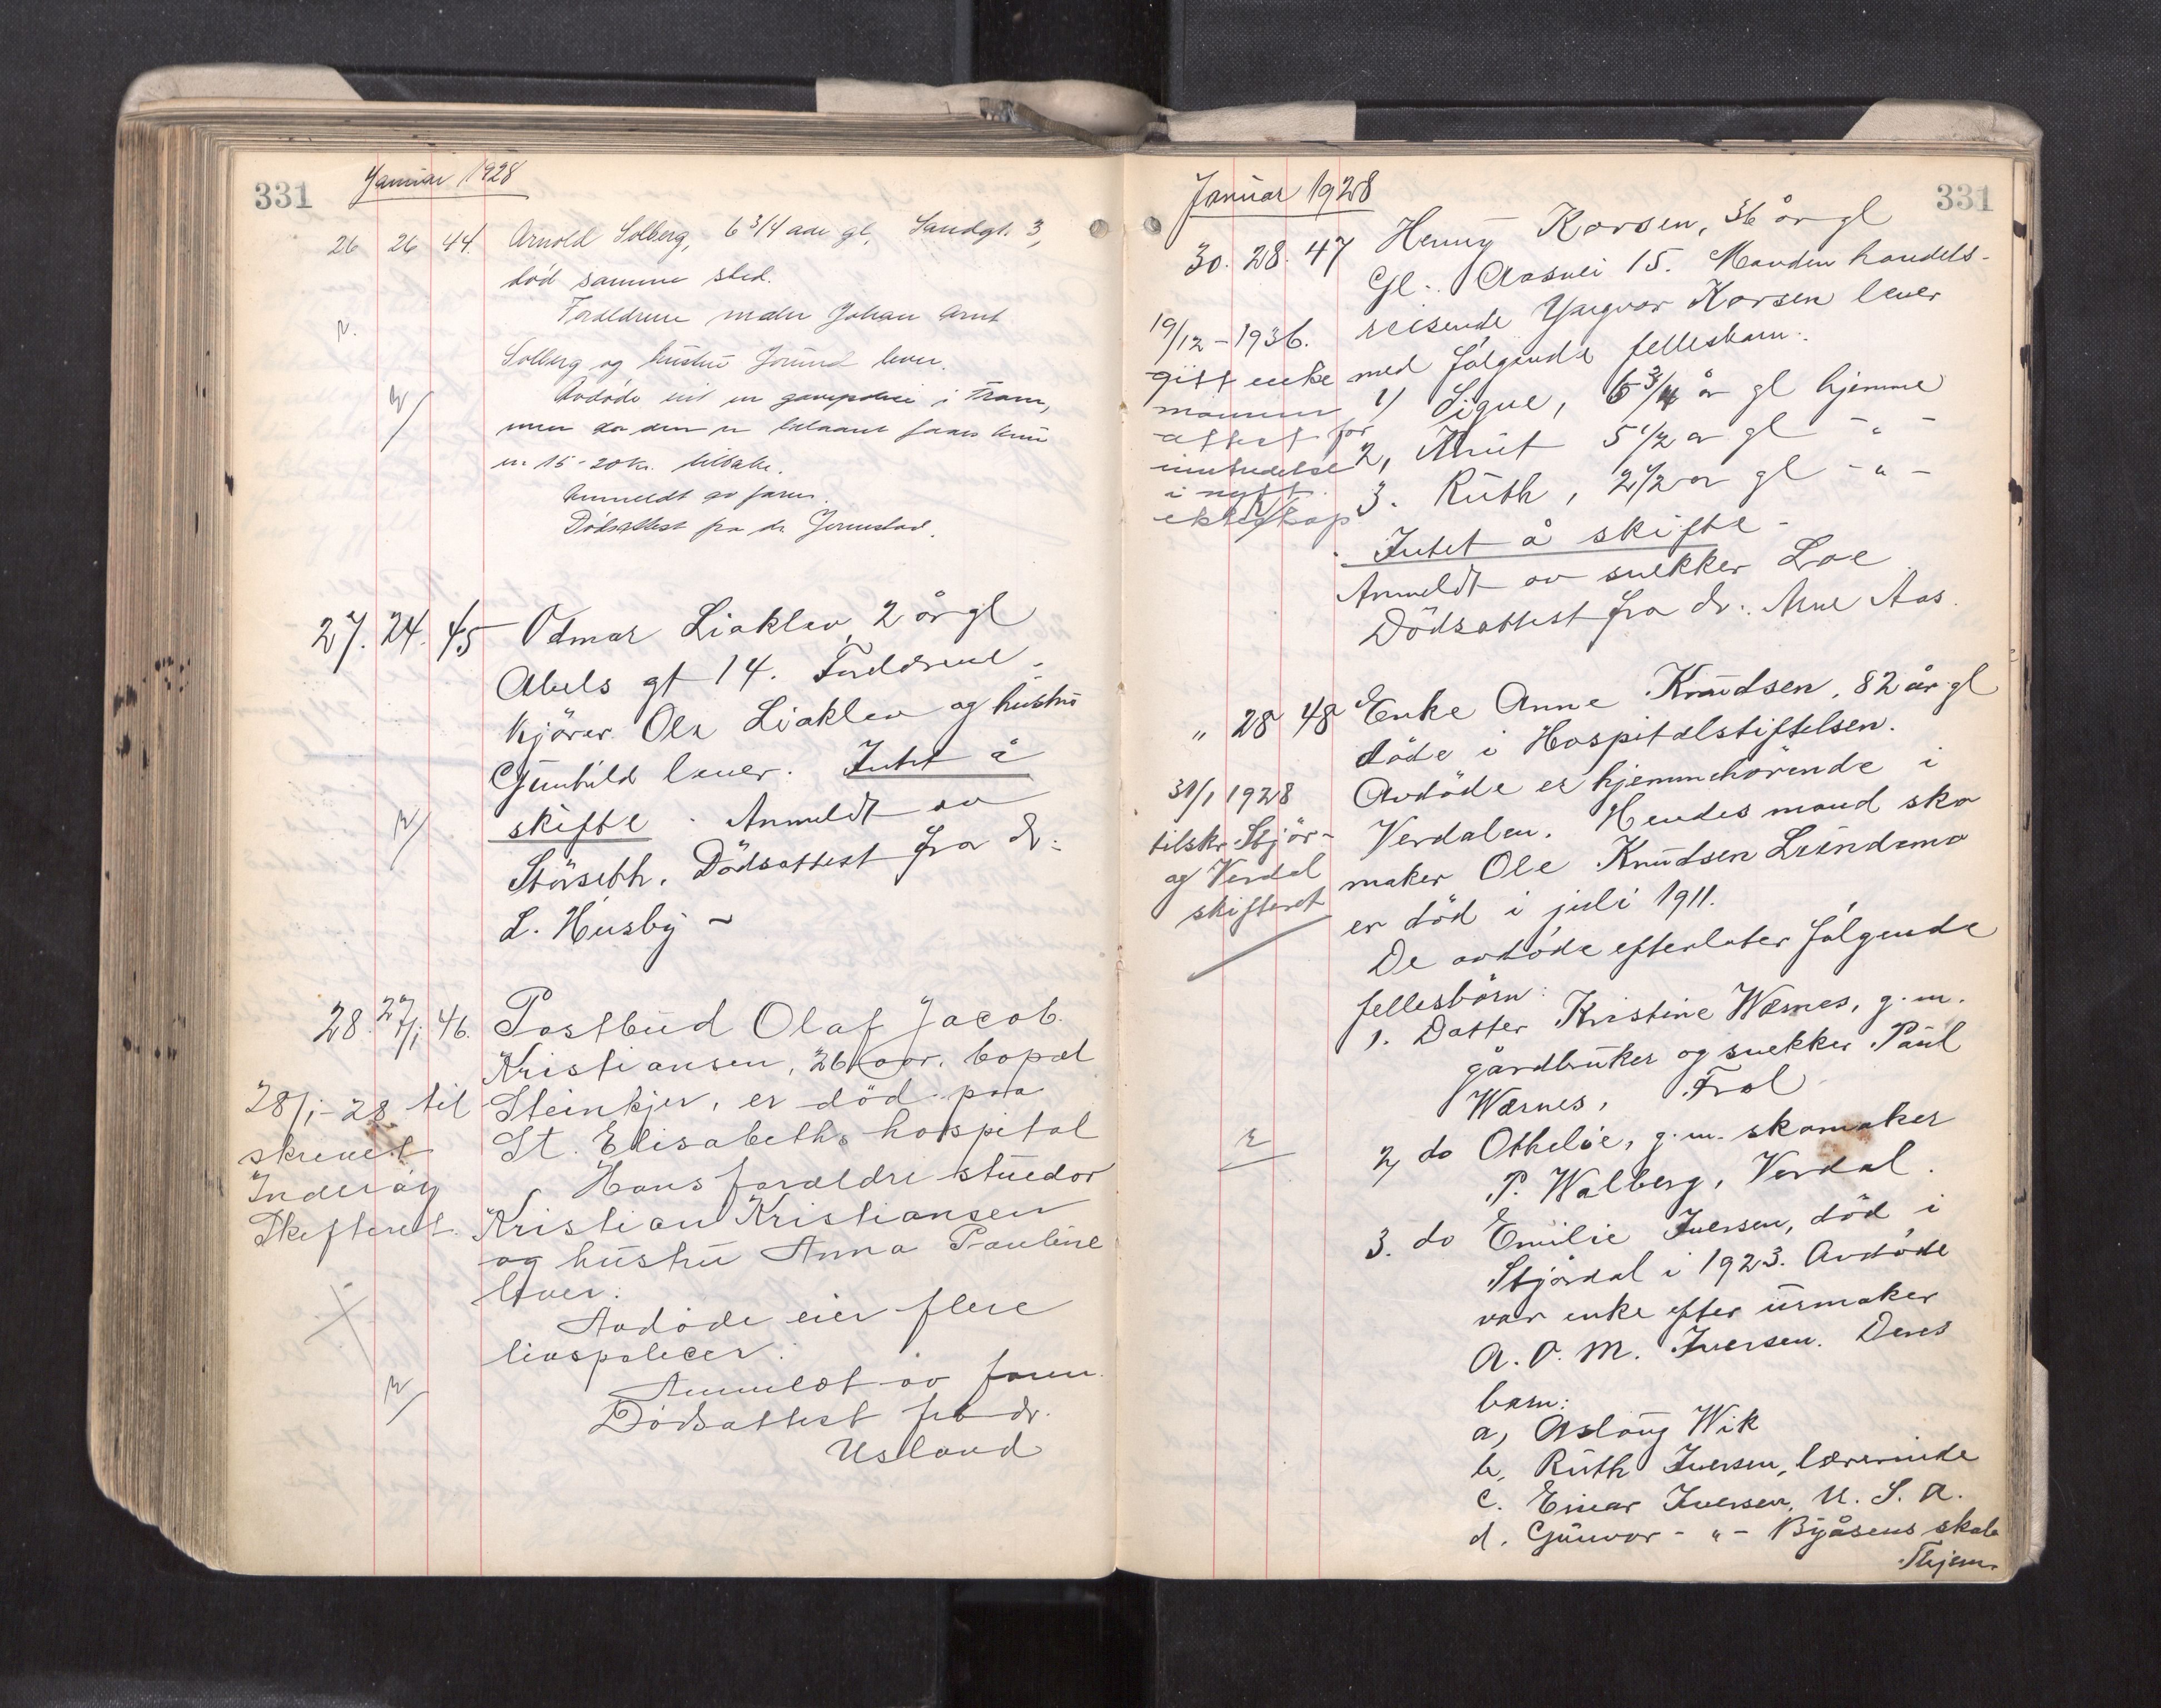 331
Januar 1928
26 26 44. Arnold Solberg, 6 3/4 aar gl, Sandgt. 3,
død samme sted.
Forældrene maler Johan Arnt
Solberg og hustru Jorund lever.
Avdøde
15-20 kr. tilbake.
Anmeldt av faren.
Dødsattest fra dr. Jermstad.
27. 24. 45 Odmar Liaklev, 2 år gl
Abels gt 14. Foreldrene
kjörer Ola Liaklev og hustru
Gunhild lever. Intet å
skifte. Anmeldt av
Störseth. Dödsattest fra dr:
L. Husby ~
28. 27/1 46. Postbud Olaf Jacob
Kristiansen, 26 aar, bopæl
Steinkjer, er död paa
St. Elisabeths hospital
Hans forældre stuedor
Kristian Kristiansen
og hustru Anna Pauline
lever.
Avdöde eier flere
livspolicer.
Anmeldt av faren.
Dödsattest fra dr.
Usland
28/1-28 til
skrevet
Inderöy
Skifteret.
331
Januar 1928
30. 28. 47 Henny Korsen, 36 år gl
Gl. Aasvei 15. Manden handels-
reisende Yngvar Korsen lever
med følgende fellesbarn:
1) Signe, 6 3/4 år gl hjemme
2, Knut 5 1/2 år gl - " -
3. Ruth, 2 1/2 år gl - " -
Intet å skifte -
Anmeldt av snekker Loe
Dödsattest fra dr. Arne Aas.
19/12-1936.
gitt enke
mannen
attest for
inntredelse
i nytt
ekteskap
" 28 48 Enke Anne Knudsen, 82 år gl
döde i Hospitalstiftelsen.
Avdöde er hjemmehörende i
Verdalen. Hendes mand sko
maker Ole Knudsen Lundemo
er död i juli 1911.
De avdöde efterlater fölgende
fellesbörn:
1. Datter Kristine Wærnes, g.m.
gårdbruker og snekker Paul
Wærnes, Frol
2, do Othelie, g.m. skomaker
P. Walberg, Verdal.
3. do Emilie Iversen, död i
Stjördal i 1923. Avdöde
var enke efter urmaker
A. O. M. Iversen. Deres
barn:
a, Aslaug Wik
b, Ruth Iversen, lærerinde
c. Einar Iversen, U.S.A.
d. Gunvor - " - Byåsens skole
Thjem.
31/1 1928
tilskr. Stjör-
og Verdal
skifteret